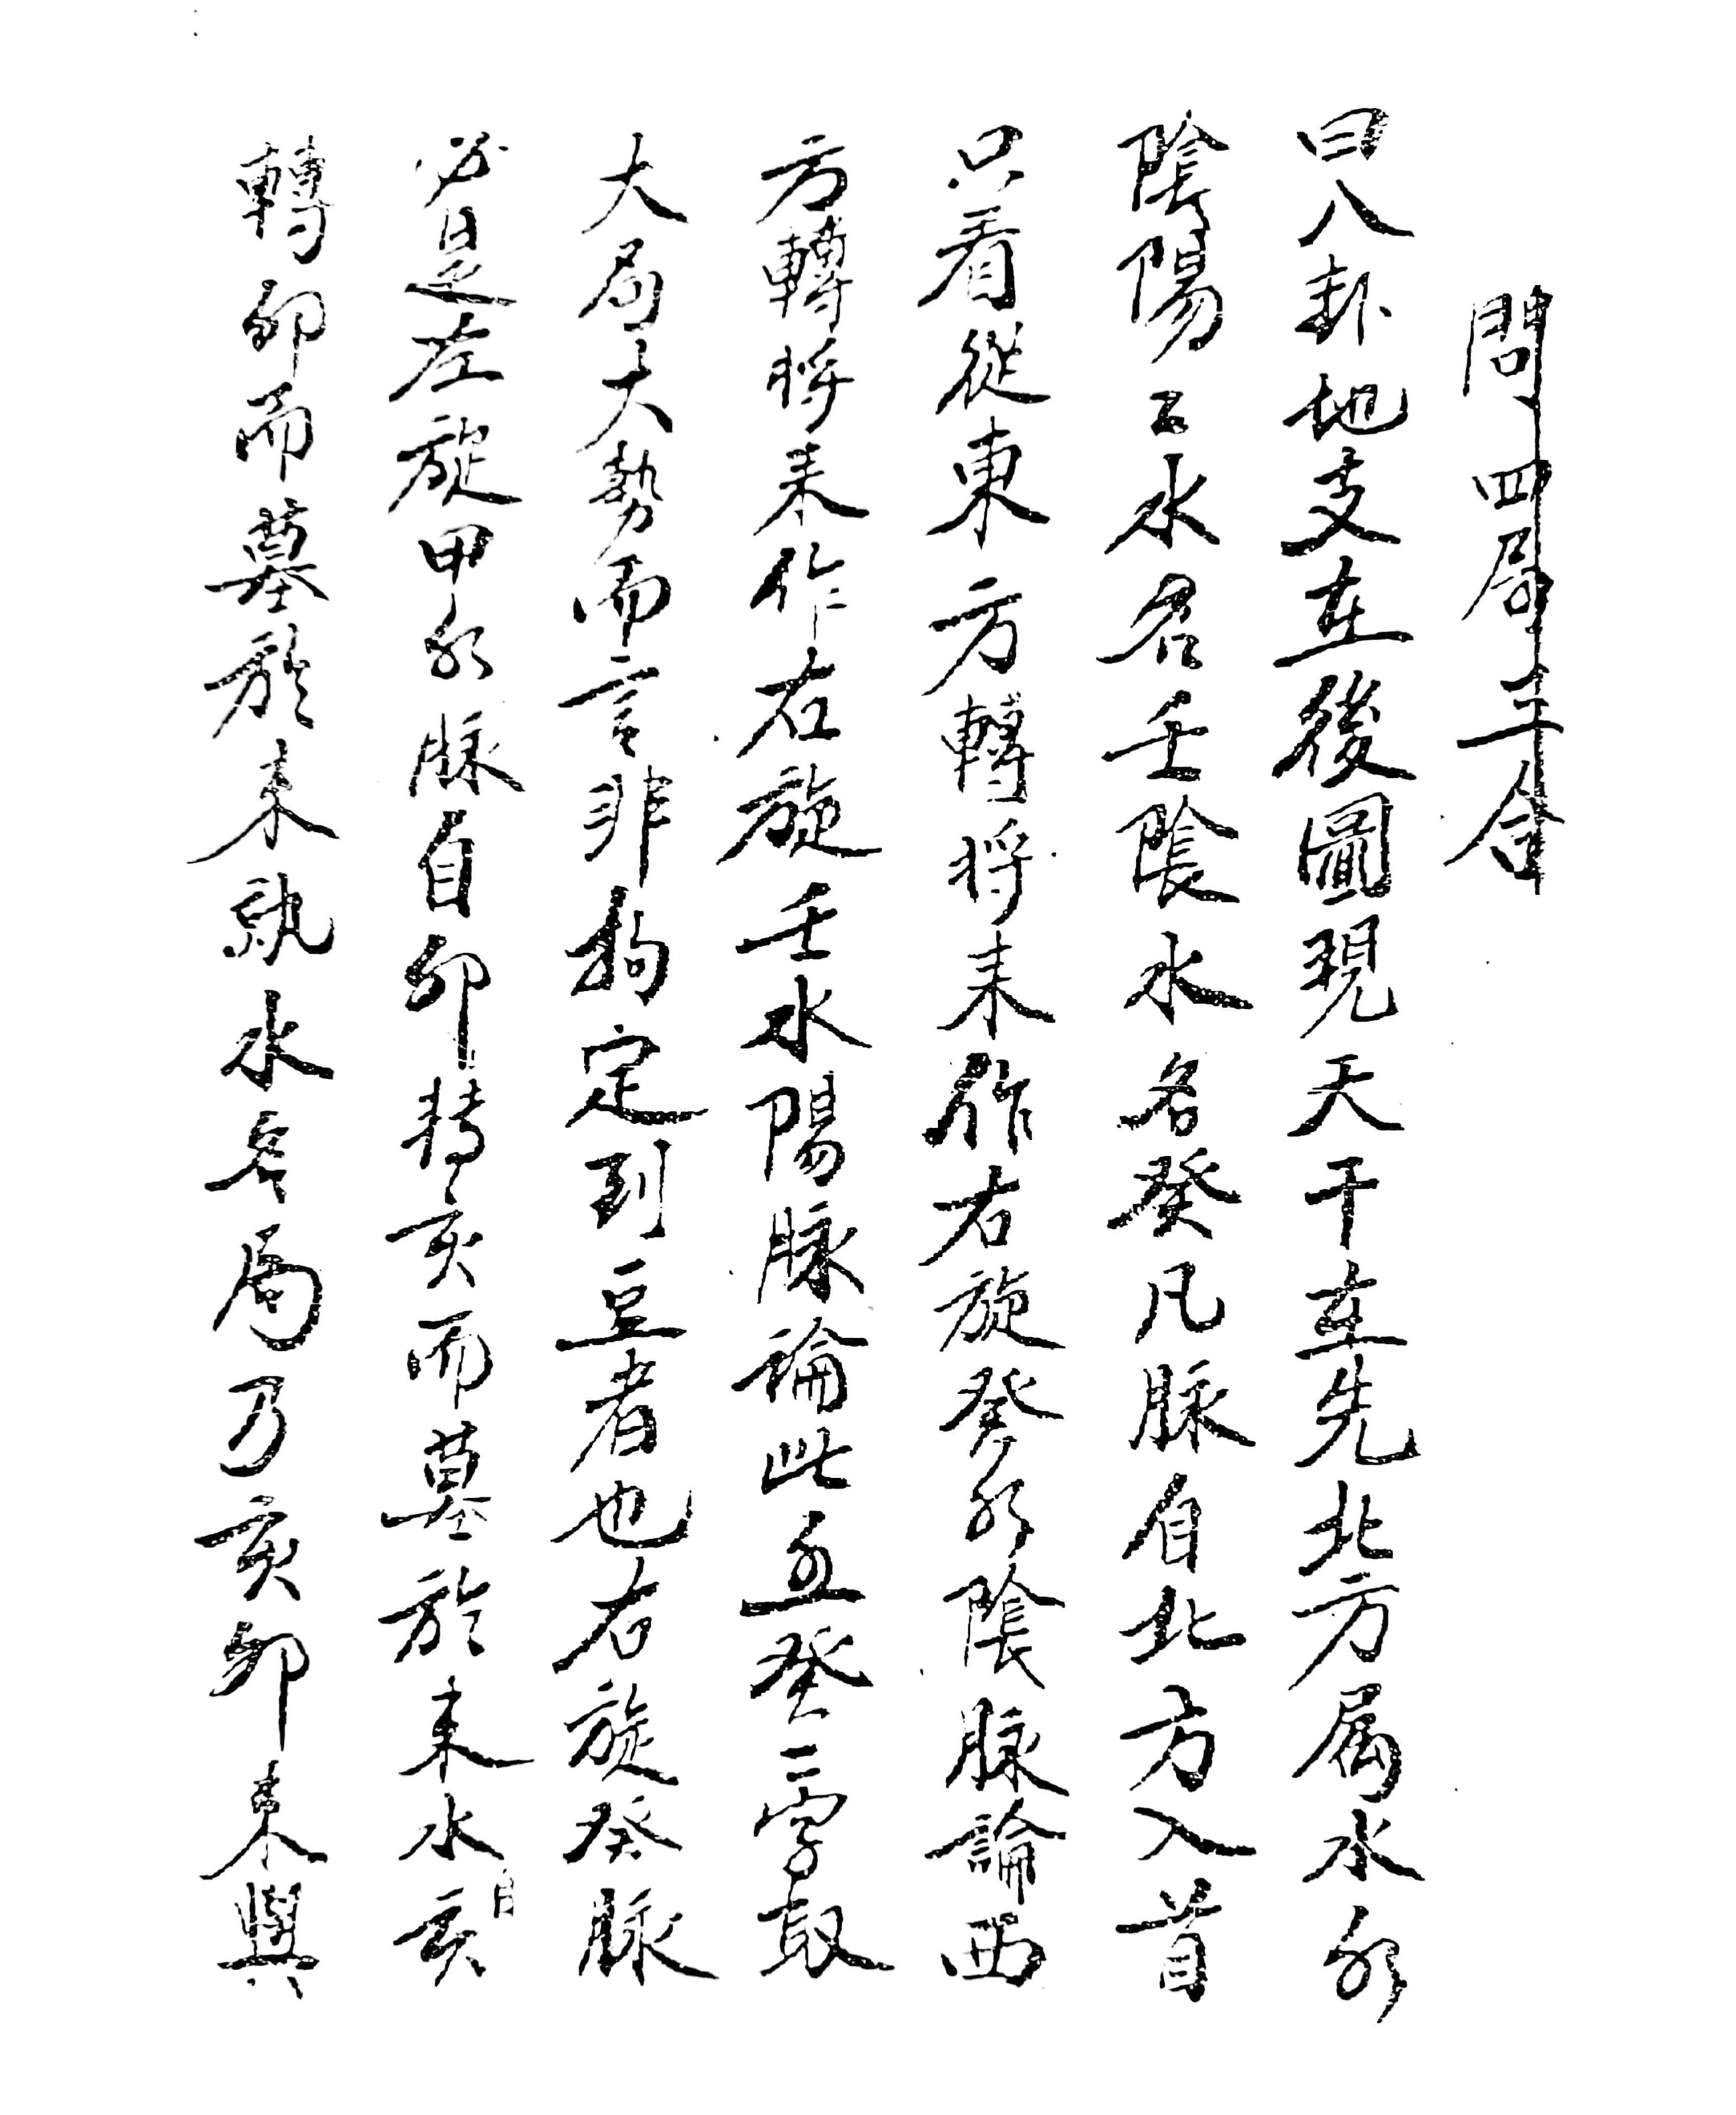 問四局三合
曰八卦地支在後圖現天干在先北方属水分
陰陽〻水名壬陰水名癸凡脉自北方入首
只看從東方轉将来作右旋癸水陰脉論西
方轉将来作右旋壬水陽脉論此壬癸二字取
大局大勢而言非拘定到豆者也右旋癸脉
必是左旋甲水脉自卯轉亥而墓於未水自亥
轉卯而墓於未孰水名局乃亥卯未與